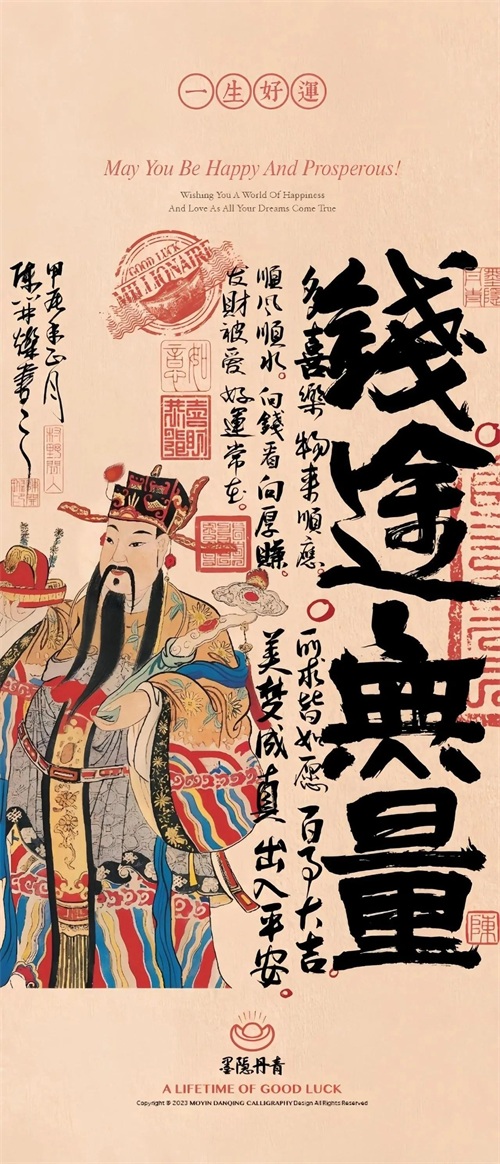 一生好運
May You Be Happy And Prosperous!
Wishing You A World Of Happiness
And Love As All Your Dreams Come True
錢途無量
多喜樂 物来順應。
所求皆如愿 百事大吉。
順风順水。向錢看向厚賺。
美梦成真 出入平安。
发財被爱 好運常在。
甲辰年正月
GOOD LUCK
MILLIONAIRE
如意
陳
墨隐丹青
A LIFETIME OF GOOD LUCK
Copyright © 2023 MOYIN DANQING CALLIGRAPHY Design All Rights Reserved